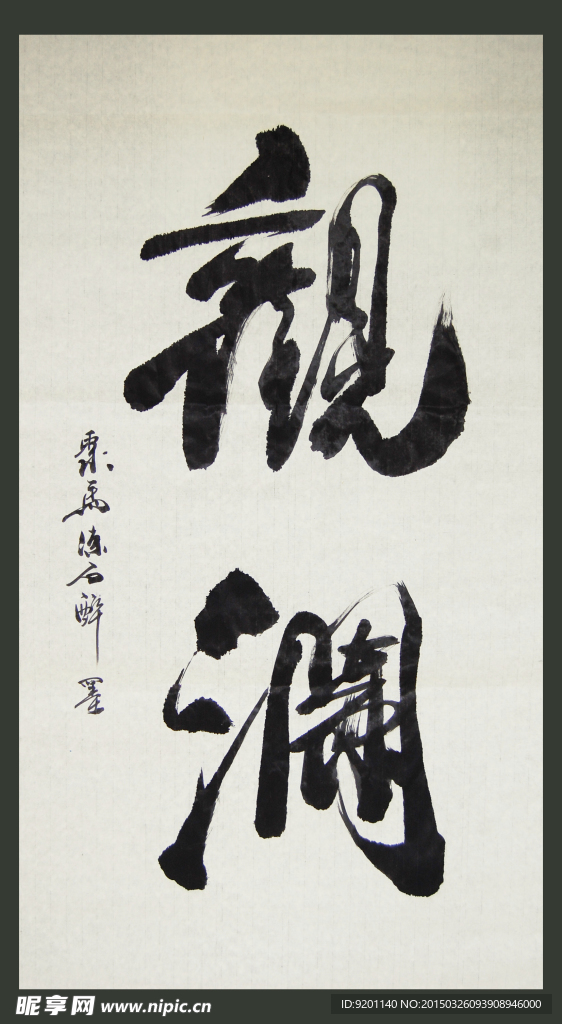 觀瀾
馬涼石醉墨
昵享网 www.nipic.cn
ID:9201140 NO:20150326093908946000